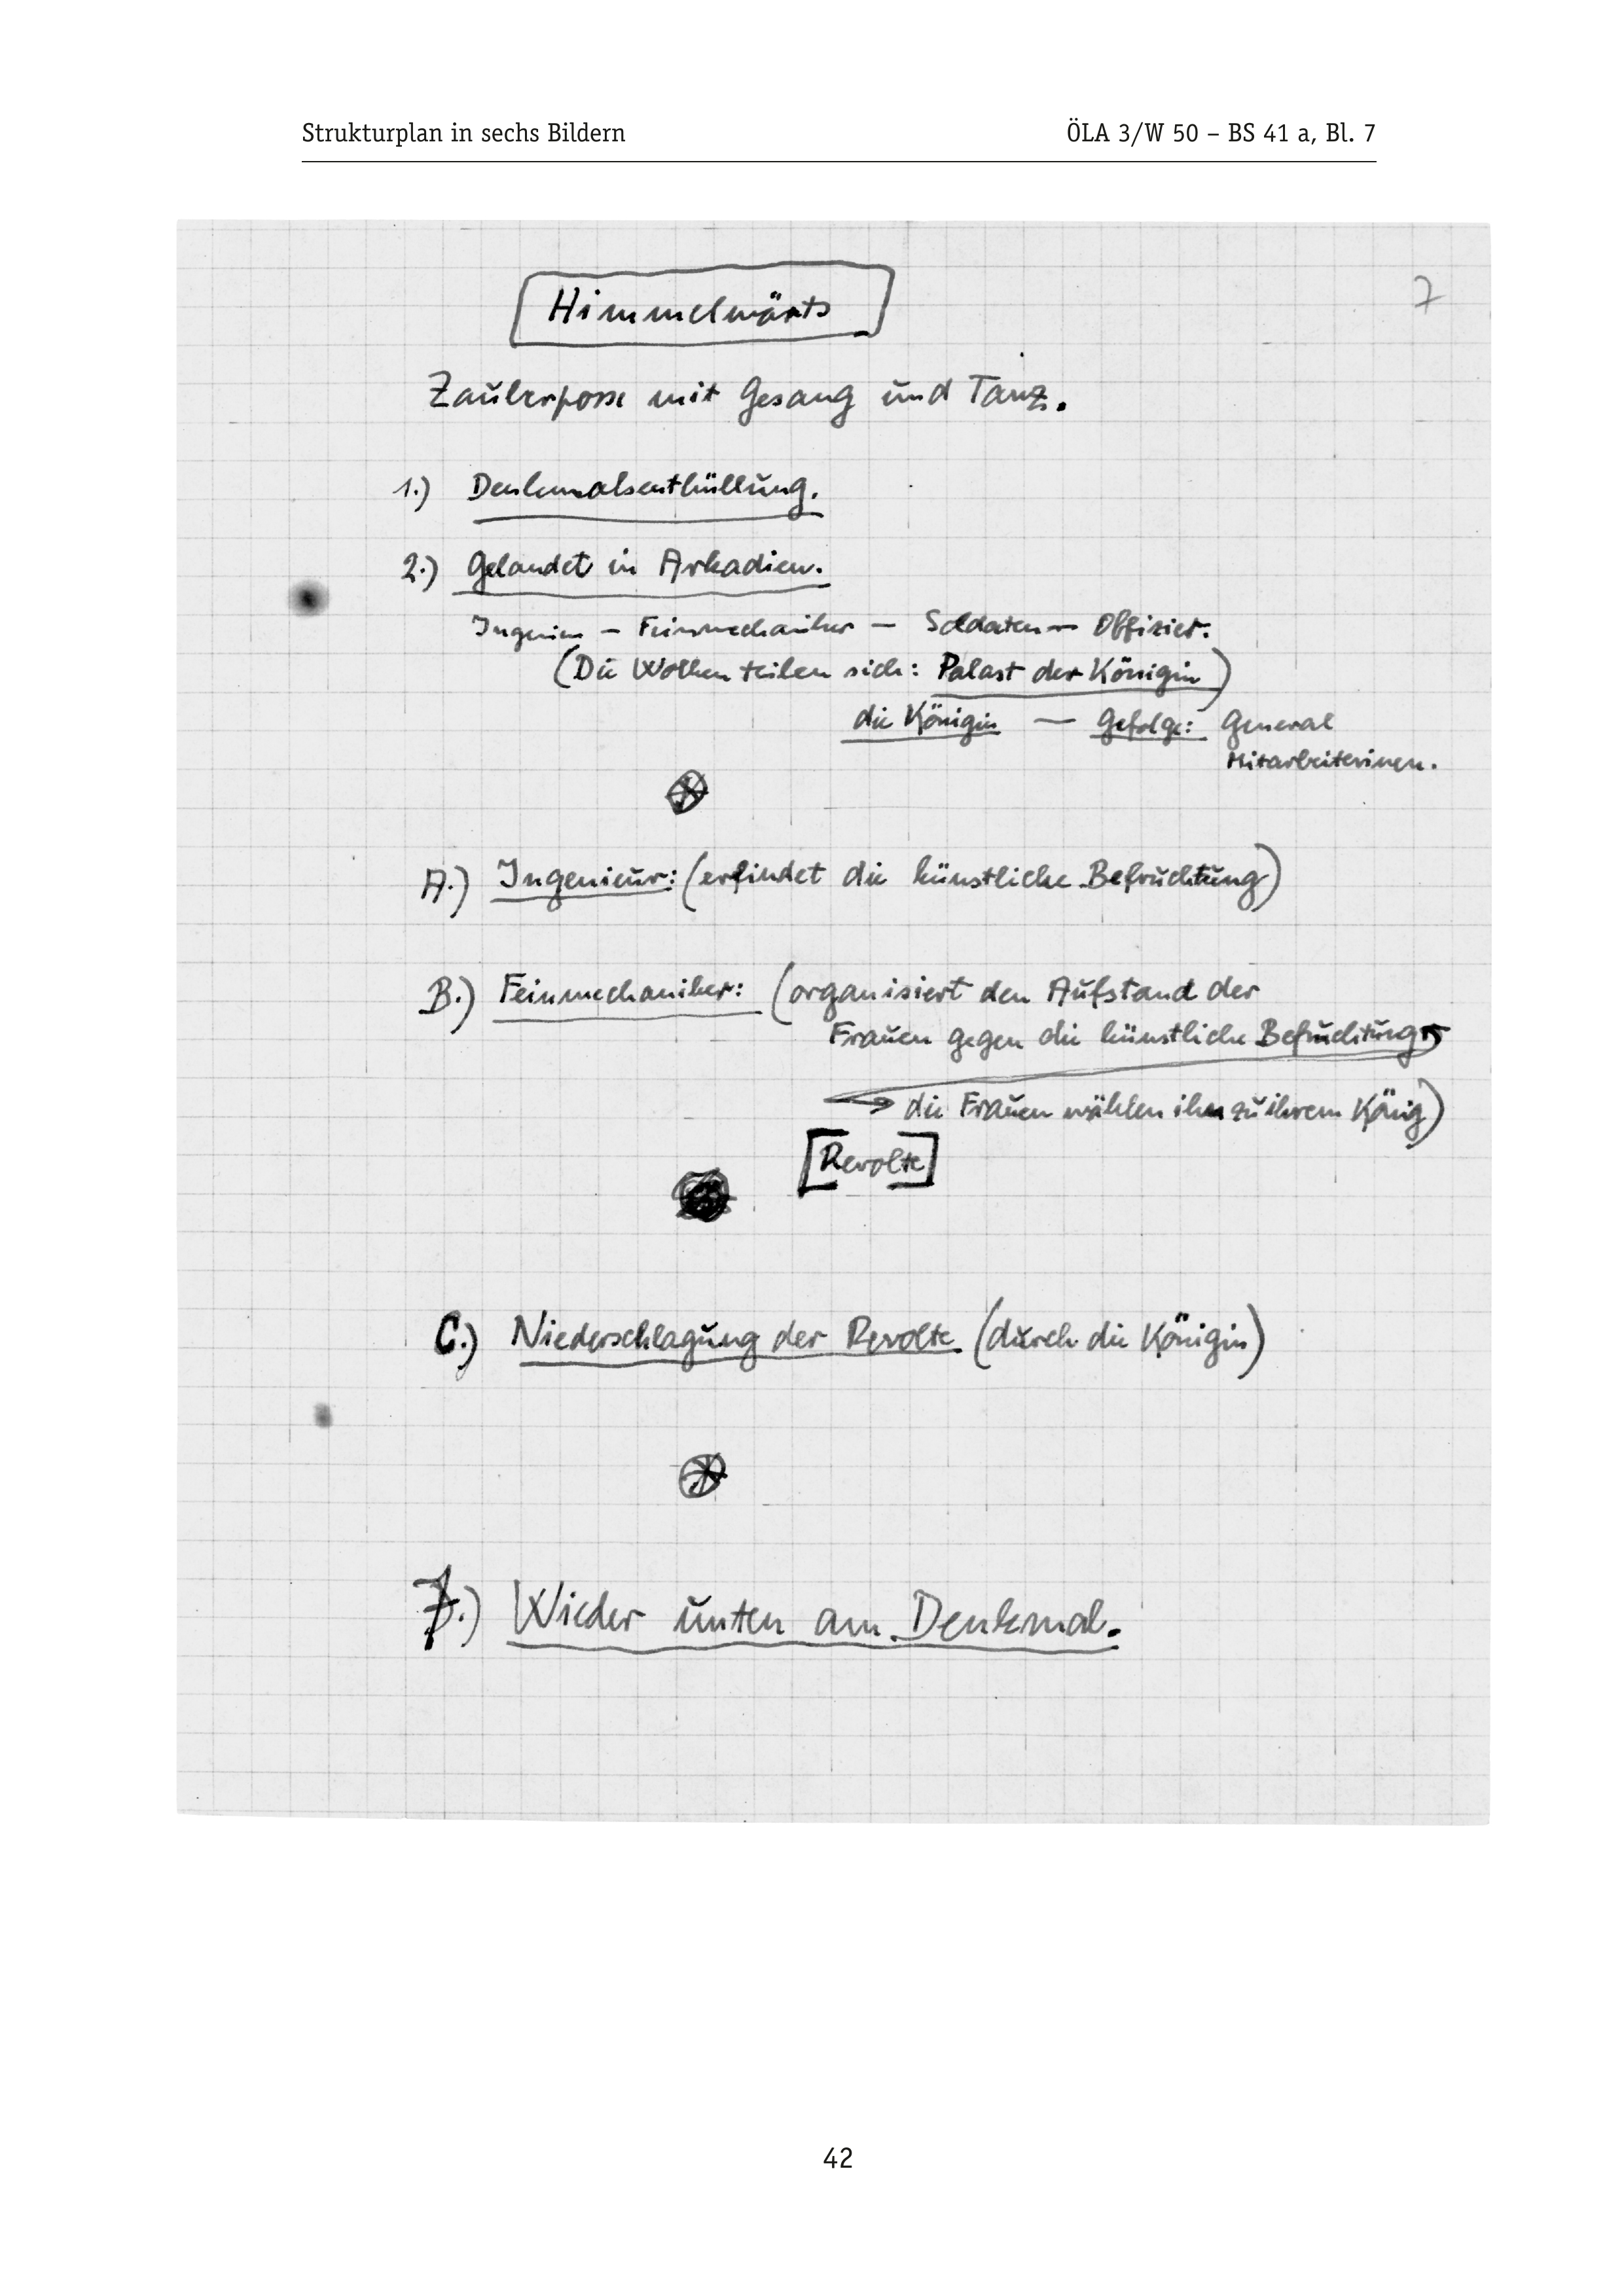 Strukturplan in sechs Bildern ÖLA 3/W 50 – BS 41 a, Bl. 7
7
Himmelwärts
Zauberposse mit Gesang und Tanz.
1.) Denkmalsenthüllung.
2.) Gelandet in Arkadien.
Ingenieur – Feinmechaniker – Soldaten – Offizier.
(Die Wolken teilen sich: Palast der Königin)
die Königin – Gefolge: General
Mitarbeiterinen.
A.) Ingenieur: (erfindet die künstliche Befruchtung)
B.) Feinmechaniker: (organisiert den Aufstand der
Frauen gegen die künstliche Befruchtung
die Frauen wählen ihn zu ihrem König)
[Revolte]
C.) Niederschlagung der Revolte (durch die Königin)
7.) Wieder unten am Denkmal.
42